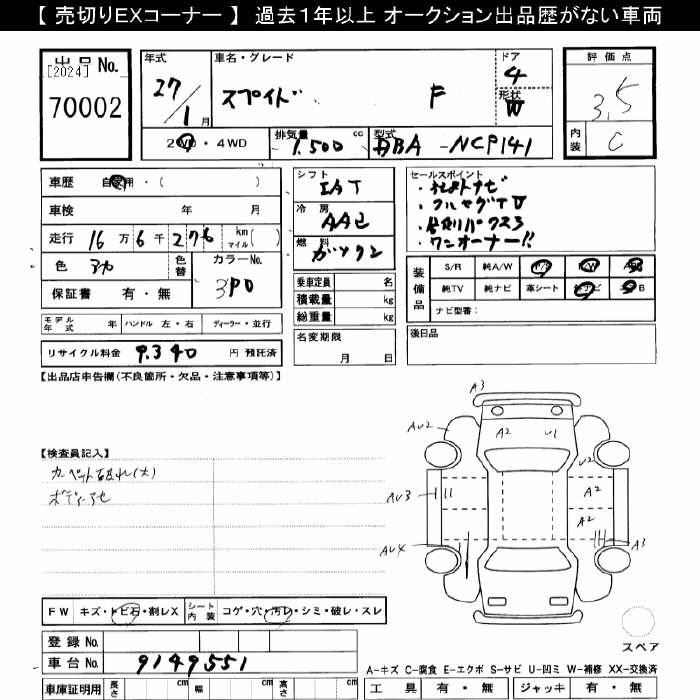 【 売切りEXコーナー 】 過去1年以上 オークション出品歴がない車両
出品 No.
[2024]
70002
年式
27/1月
車名・グレード
スペイド F
ドア
4
形状
W
2WD・4WD
排気量 cc
1.500
型式
DBA -NCP141
評価点
3.5
内装
C
車歴 自家用・( )
車検 年 月
走行 16万6千276 km マイル( )
色 アカ
色替
カラーNo.
3P0
保証書 有・無
モデル年式 年 ハンドル 左・右 ディーラー・並行
リサイクル料金 9.340 円 預託済
シフト
IAT
冷房
AAC
燃料
ガソリン
乗車定員 名
積載量 kg
総重量 kg
名変期限
月 日
セールスポイント
・フルセグTV
・ワンオーナー!!
装備品
S/R 純A/W P/S P/W ABS
純TV 純ナビ 革シート B
ナビ型番:
後日品
【出品店申告欄(不良箇所・欠品・注意事項等)】
【検査員記入】
カーペット破れ(大)
ボディアセ
FW キズ・トビ石・割レX
シート内装 コゲ・穴・汚レ・シミ・破レ・スレ
登録 No.
車台 No. 9149551
車庫証明用 長さ cm 幅 cm 高さ cm
A3
AU2
A2
U1
U2
AU3
A2
A2
AU4
A3
スペア
A-キズ C-腐食 E-エクボ S-サビ U-凹ミ W-補修 XX-交換済
工具 有・無 ジャッキ 有・無